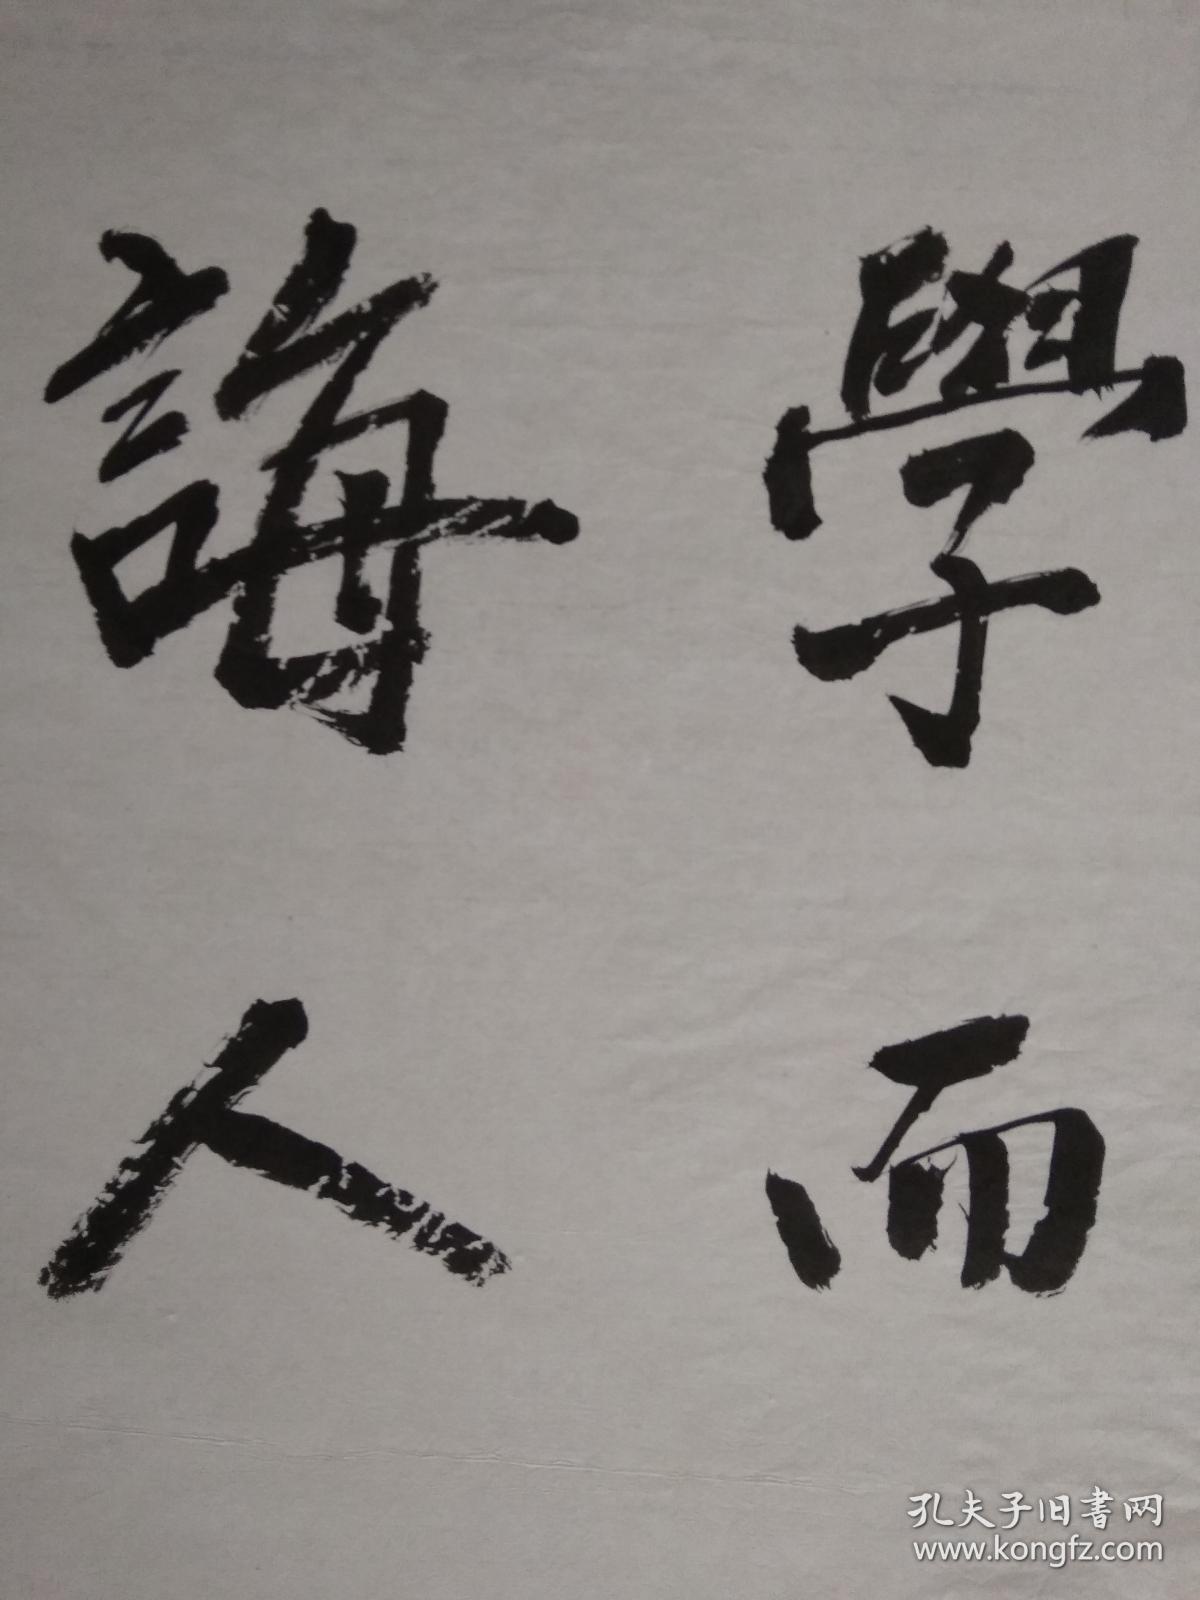 學而
誨人
孔夫子旧書网
www.kongfz.com